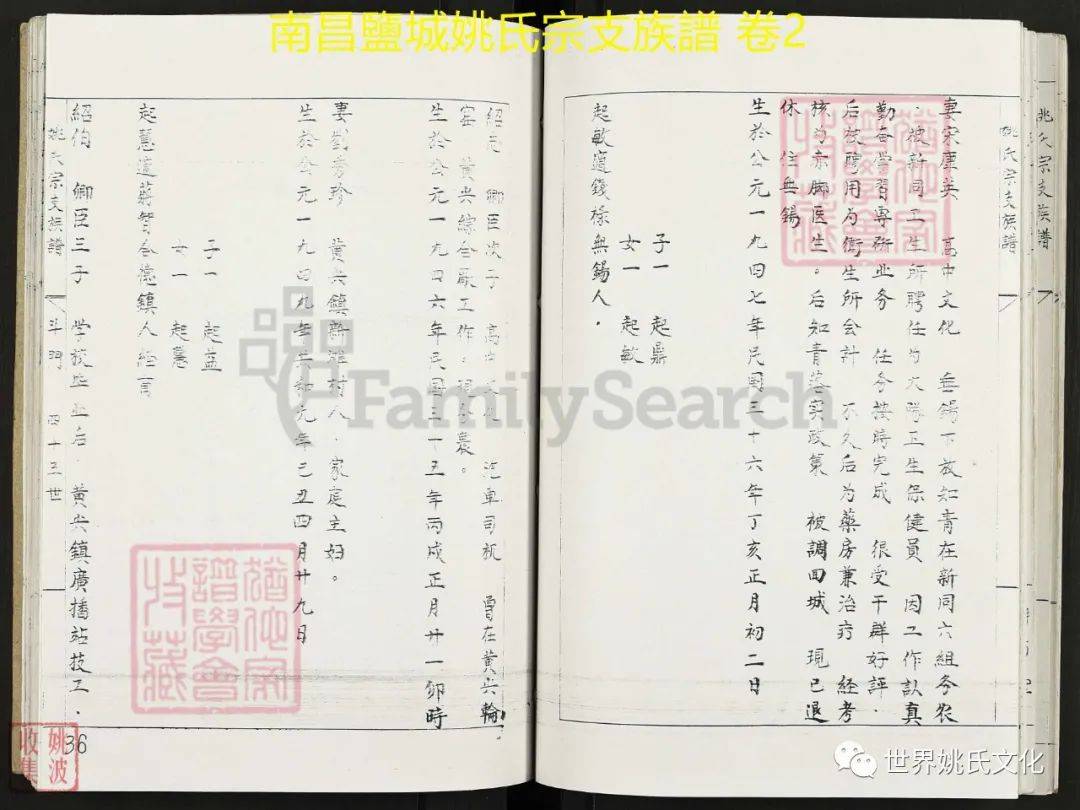 南昌鹽城姚氏宗支族譜 卷2
姚氏宗支族譜
姚氏宗支族譜
妻宋康英 高中文化 無錫下放知青在新同六組务农
．被新同卫生所聘任为大隊卫生保健員 因工作認真
勤奋学習专研业务 任务按時完成 很受干群好評．
后被聘用为衛生所会計 不久后为藥房兼治疗 经考
核为赤脚医生。后知青落实政策 被調回城 現已退
休 住無錫
生於公元一九四七年民國三十六年丁亥正月初二日
子一 起鼎
女一 起敏
起敏適錢樣無錫人．
紹元 卿臣次子 高中文化 汽車司机 曾在黄尖輪
窑 黄尖綜合厰工作。現
生於公元一九四六年民國三十五年丙戌正月廿一卯時
妻劉秀珍 黄尖鎮新灘村人．家庭主妇。
生於公元一九四九年共和元年己丑四月廿九日
子一 起益
女一 起慧
起慧適蔣智合德鎮人经商
紹伯 卿臣三子 学校毕业后．黄尖鎮廣播站技工．
姚氏宗支族譜 斗門 四十三世
36
猶他家譜學會收藏
猶他家譜學會收藏
姚波收集
FamilySearch
世界姚氏文化